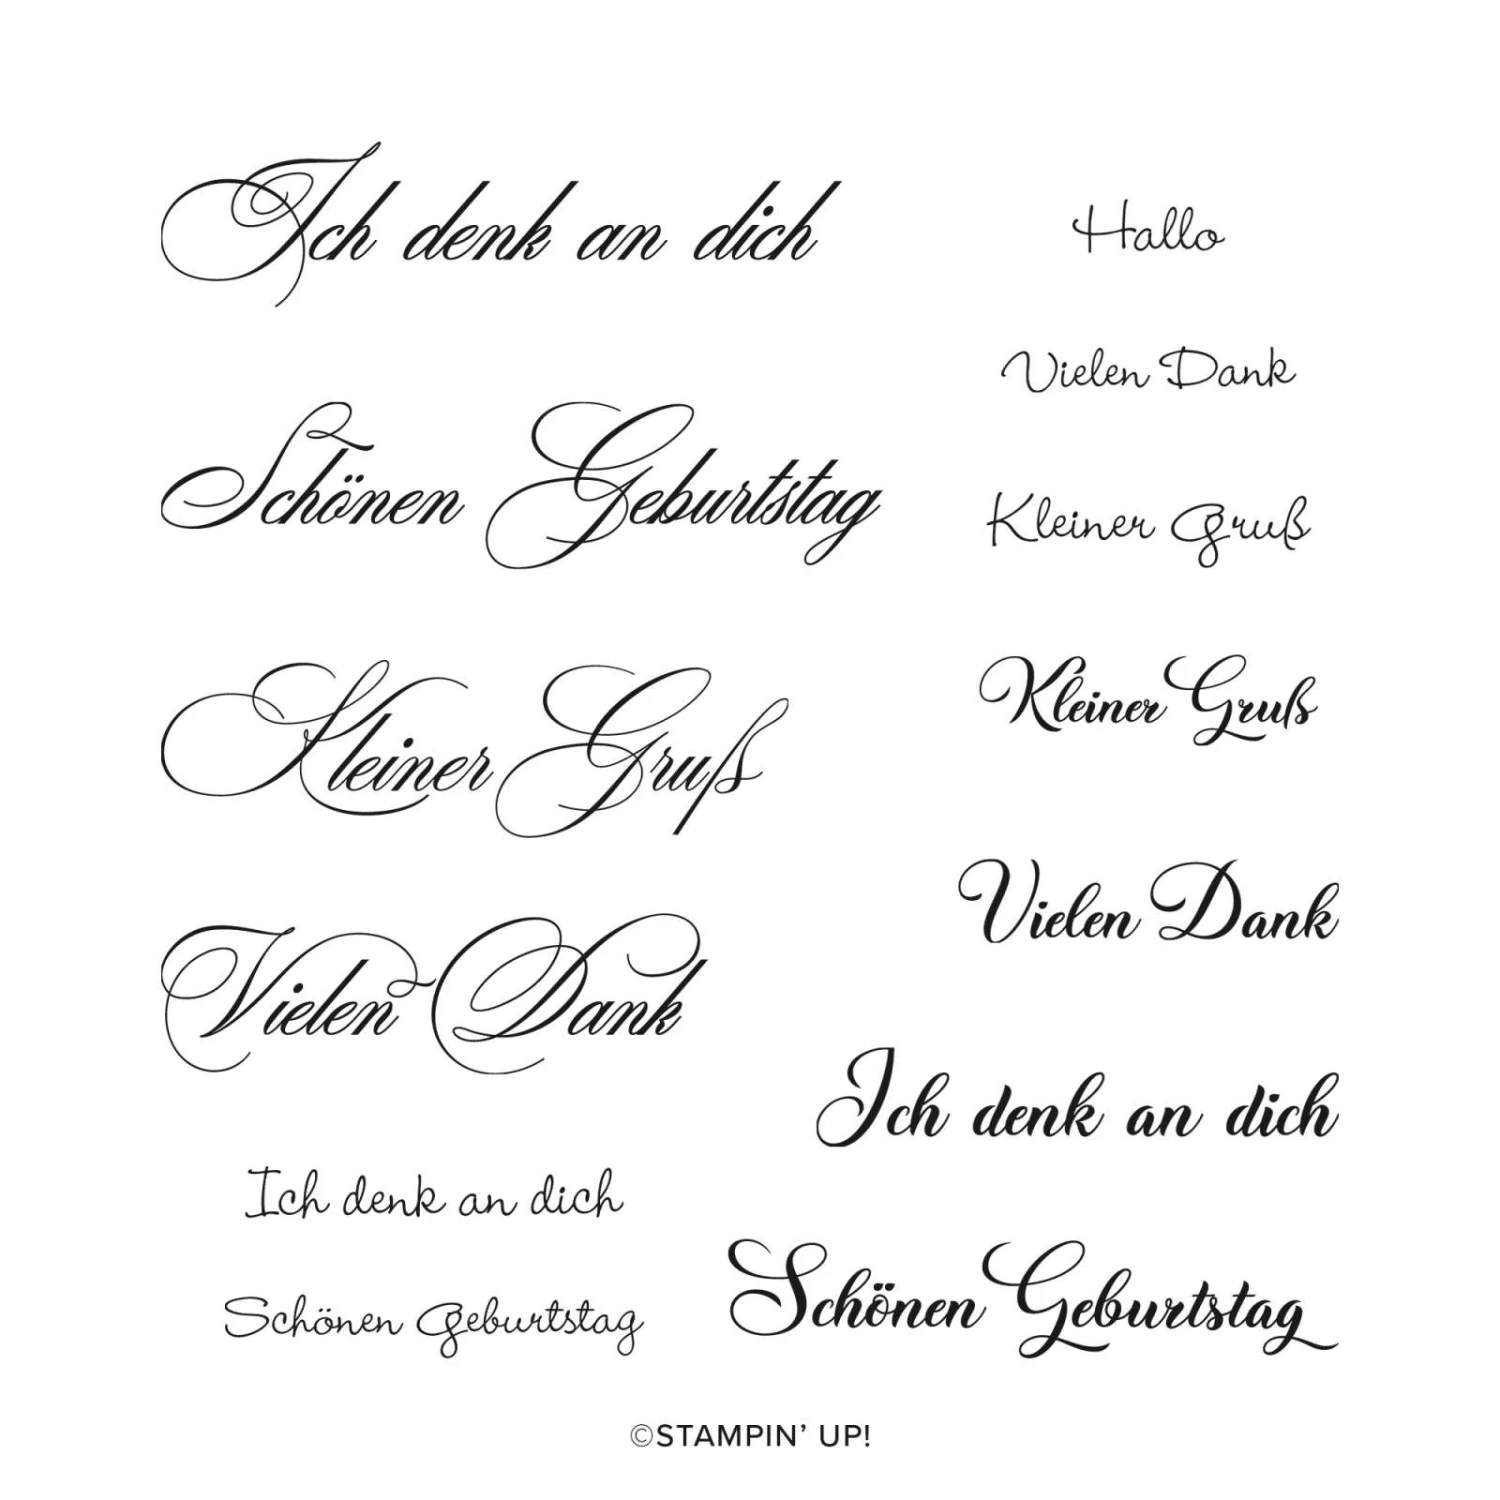 Ich denk an dich
Hallo
Vielen Dank
Schönen Geburtstag
Kleiner Gruß
Kleiner Gruß
Kleiner Gruß
Vielen Dank
Vielen Dank
Ich denk an dich
Ich denk an dich
Schönen Geburtstag
Schönen Geburtstag
©STAMPIN' UP!